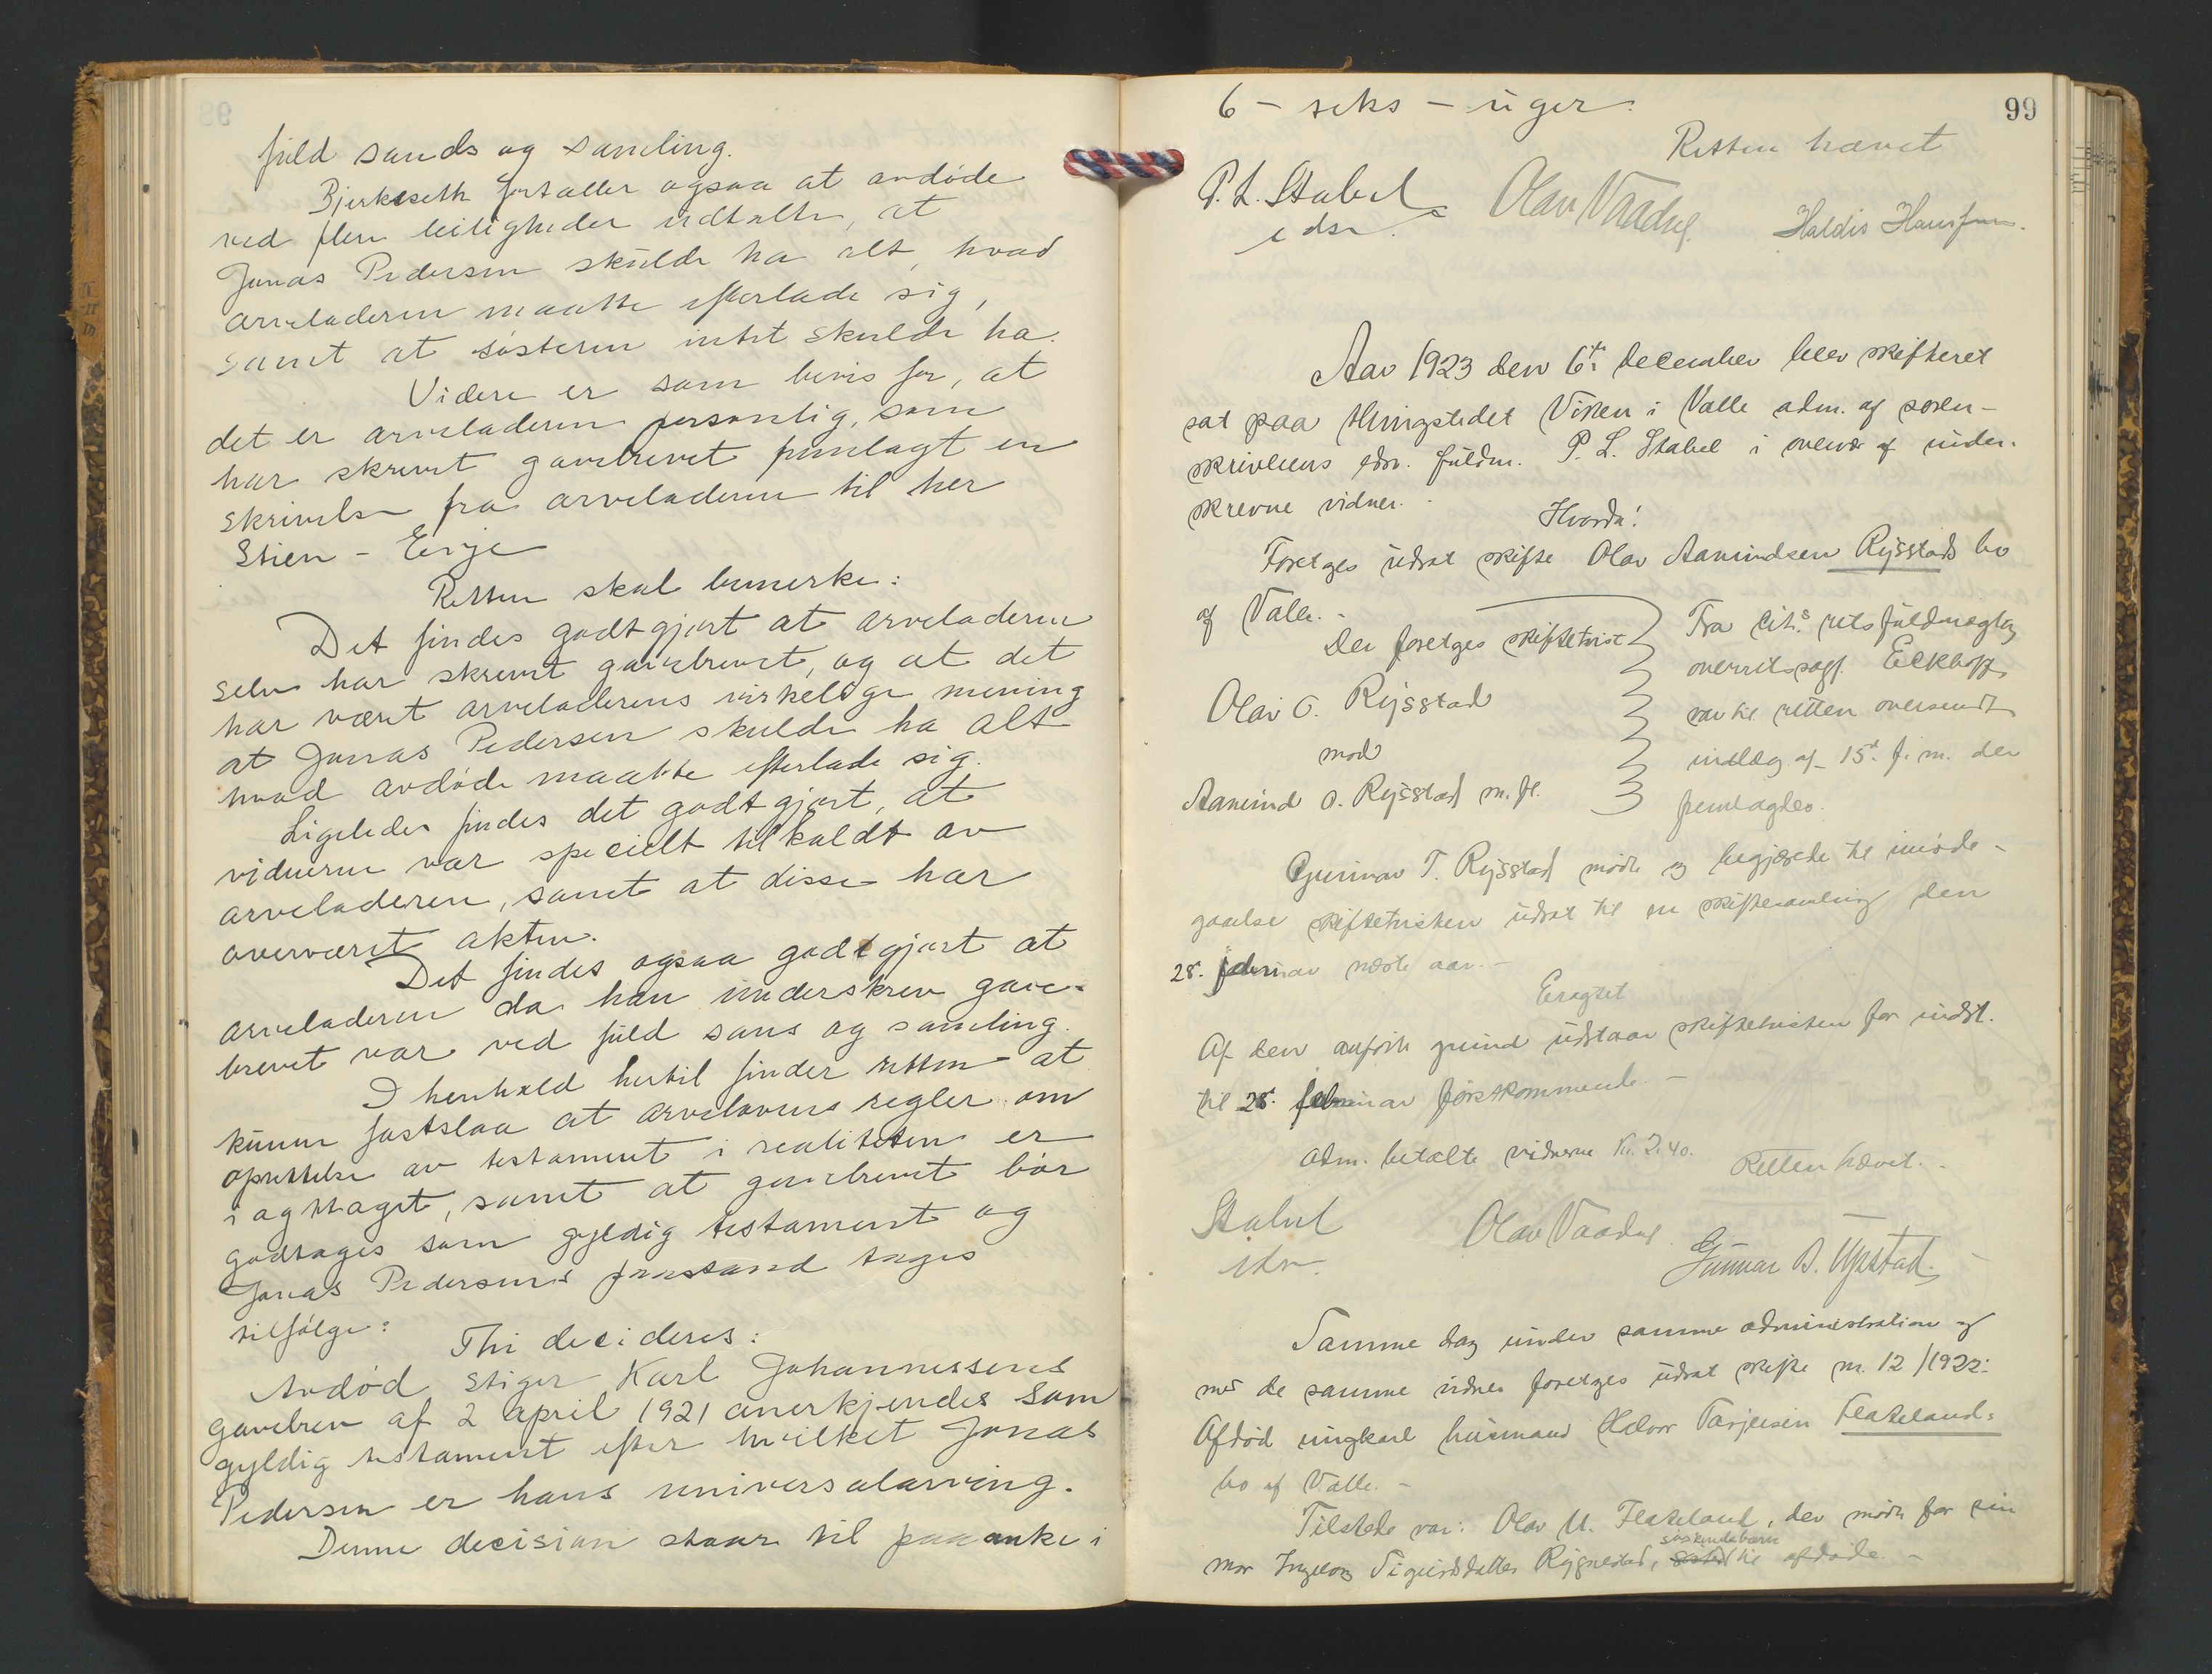 fuld sands og samling.
Bjerkeseth fortæller ogsaa at avdøde
ved flere leiligheder udtalte, at
Jonas Pedersen skulde ha alt, hvad
arveladeren maatte efterlade sig,
samt at søsteren intet skulde ha.
Videre er som bevis for, at
det er arveladeren personlig, som
har skrevet gavebrevet fremlagt en
skrivelse fra arveladeren til her
Stien - Evje
Retten skal bemerke:
Det findes godtgjort at arveladeren
selv har skrevet gavebrevet, og at det
har været arveladerens virkelige mening
at Jonas Pedersen skulde ha alt
hvad avdøde maatte efterlade sig.
Ligeledes findes det godtgjort, at
vidnerne var specielt tilkaldt av
arveladeren, samt at disse har
overværet akten.
Det findes ogsaa godtgjort at
arveladeren da han underskrev gave-
brevet var ved fuld sans og samling.
I henhold hertil finder retten at
kunne fastslaa at arvelovens regler om
oprettelse av testament i realiteten er
iagttaget, samt at gavebrevet bør
godtages som gyldig testament og
Jonas Pedersens paastand tages
tilfølge:
Thi decideres:
Avdød stiger Karl Johannessens
gavebrev af 2 april 1921 anerkjendes som
gyldig testament efter hvilket Jonas
Pedersen er hans universalarving.
Denne decision staar til paaanke i
99
6 - seks - uger.
Retten hævet
P. L. Stabel
edsv.
Olav Vaadne
Haldis Hansen.
Aar 1923 den 6te december blev skifteret
sat paa thingstedet Viken i Valle adm. af soren-
skriverens edsv. fuldm. P. L. Stabel i overvær af under-
skrevne vidner.
Hvorda!
Foretges udsat skifte Olav Aamundsen Rysstads bo
af Valle.
Der foretges skiftetvist
Olav O. Rysstad
mod
Aamund O. Rysstad m. fl.
Fra cits. rets fuldmægtig
overretssagf. Eckhoff
var til retten oversendt
indlæg af 15d. f. m. der
fremlagdes.
Gunnar T. Rysstad mødte og begjærede til imøde-
gaaelse skiftetvisten udsat til en skiftesamling den
28. februar næste aar.
Eragtet
Af den anførte grund udstaar skiftetvisten for indst.
til 28. februar førstkommende.
Adm. betalte vidnerne kr. 2.40.
Retten hævet.
Stabel
edsv.
Olav Vaadne
Gunnar D. Uppstad.
Samme dag under samme administration og
med de samme vidner foretges udsat skifte nr. 12/1922:
Afdød ungkarl husmand Halvor Tarjeisen Flateland's
bo af Valle.
Tilstede var: Olav U. Flateland, der mødte for sin
søskendebarn
mor Ingeborg Sigurdsdatter Rygnestad, til afdøde.